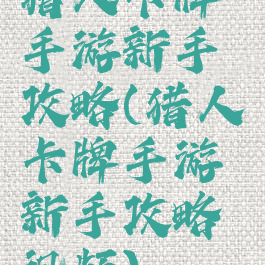 猎人卡牌
手游新手
攻略(猎人
卡牌手游
新手攻略
视频)